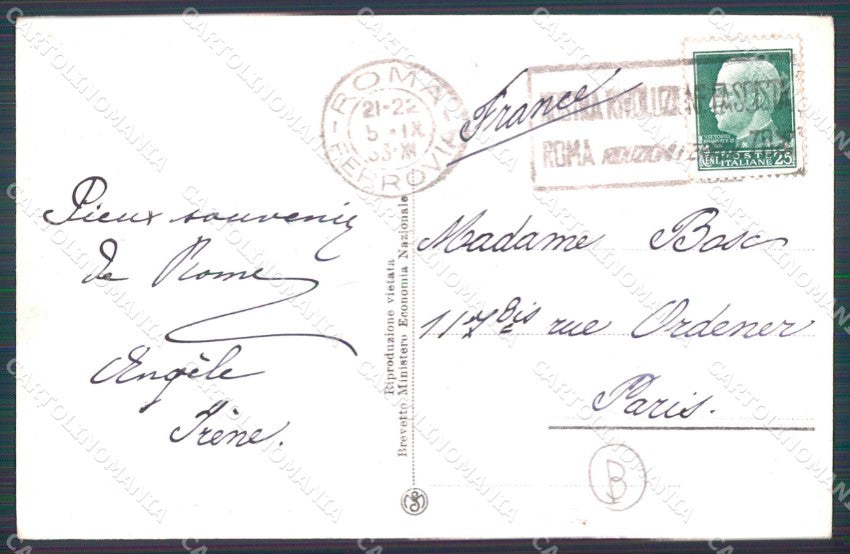 ROMA
FERROVIA
21-22
5·IX
33·XI
France
MOSTRA RIVOLUZIONE FASCISTA
ROMA RIDUZIONI
POSTE
ITALIANE 25
Pieux souvenir
de Rome
Angèle
Irène.
Riproduzione vietata
Brevetto Ministero Economia Nazionale
Madame Bosc
117 Bis rue Ordener
Paris.
B
CARTOLINOMANIA